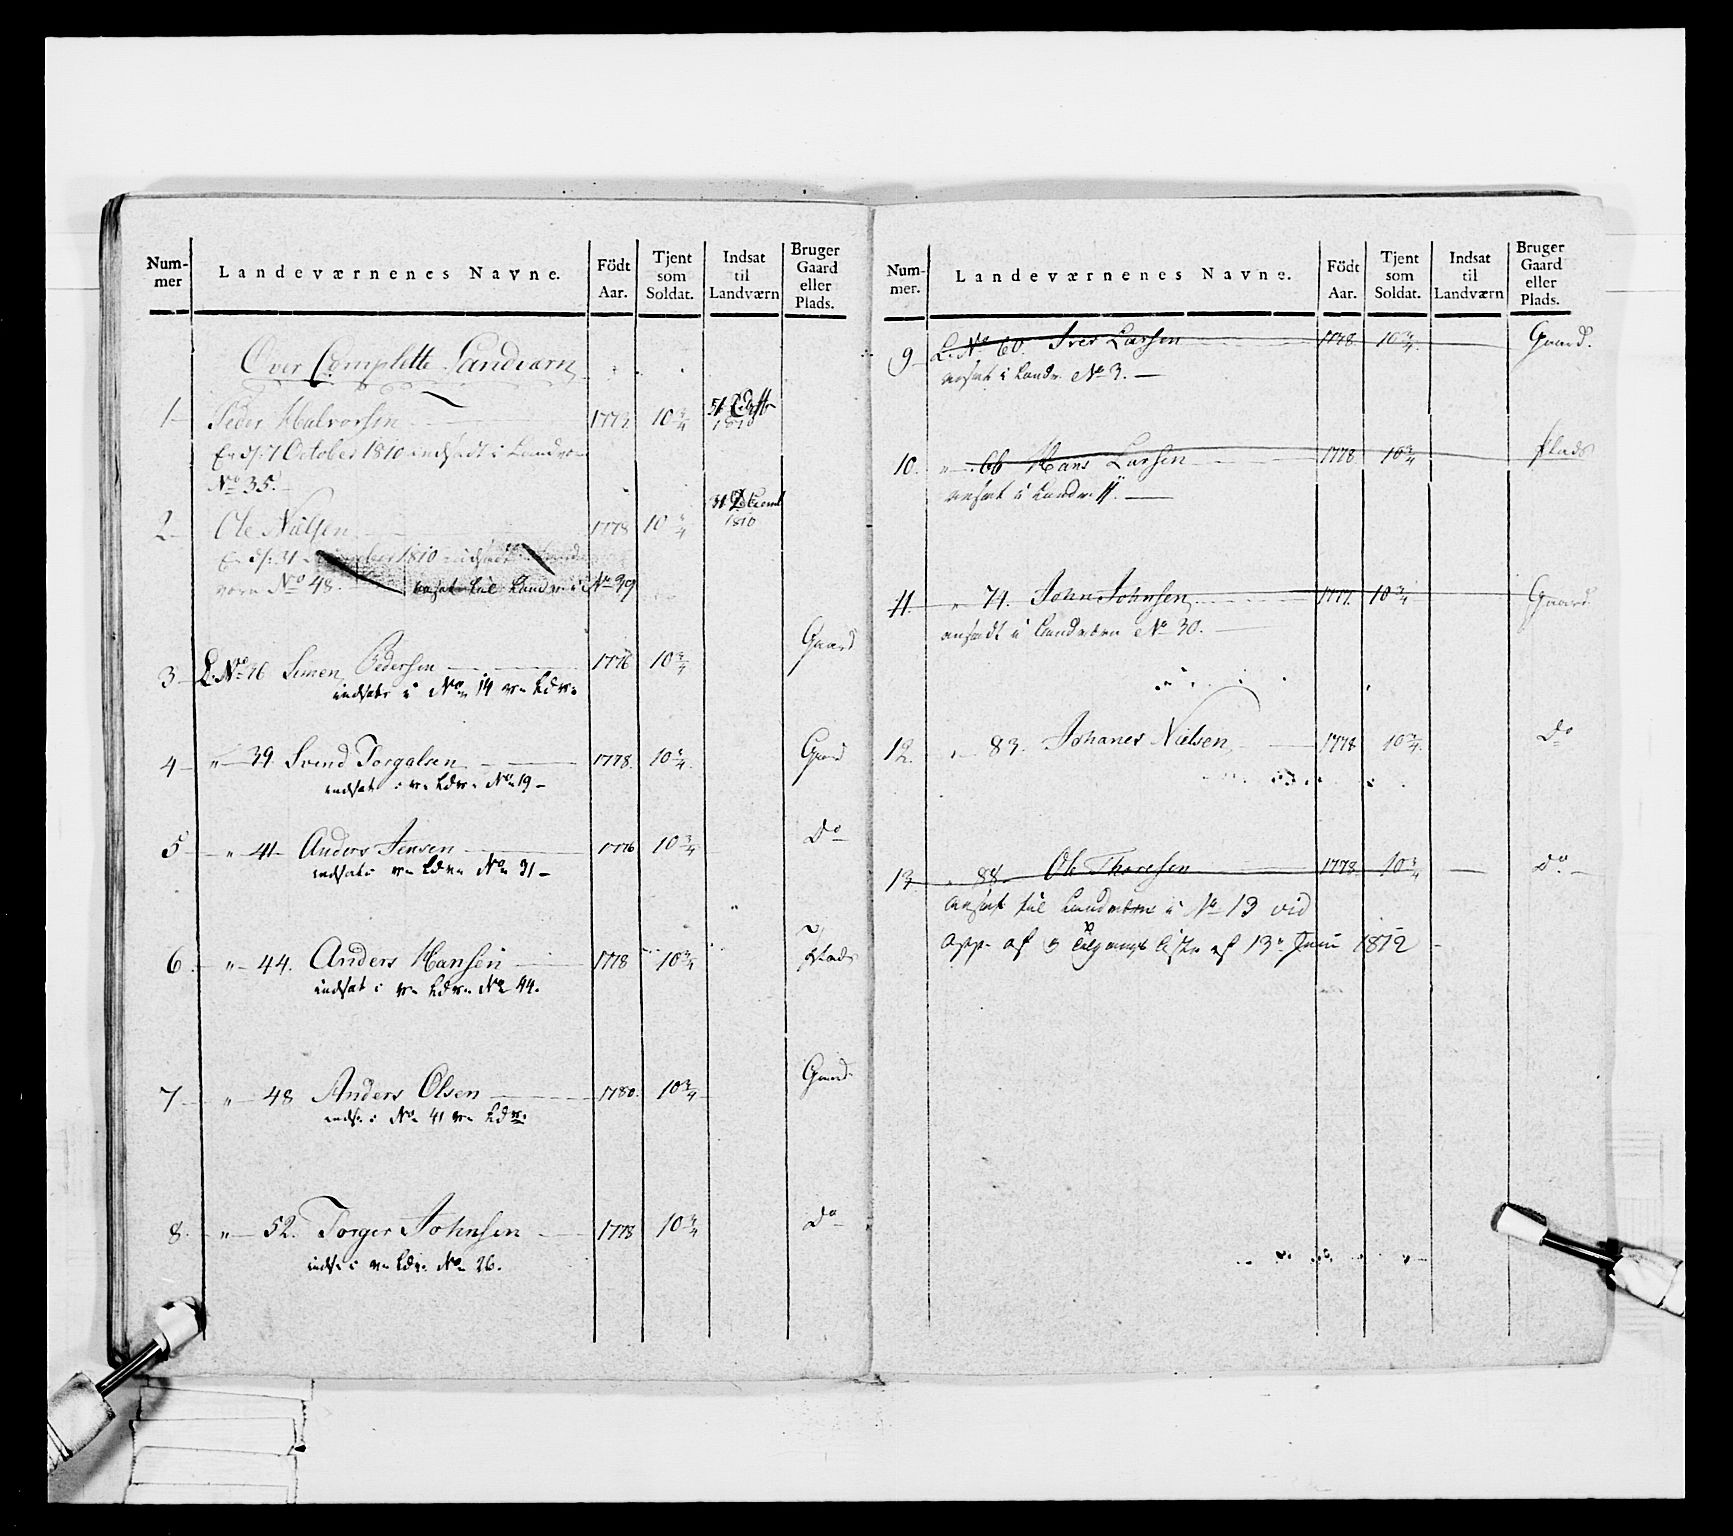 Num-
mer
Landeværnenes Navne.
Födt
Aar.
Tjent
som
Soldat.
Indsat
til
Landværn
Bruger
Gaard
eller
Plads.
Over Complette Landværn
1 Peder Halvorsen 1773 10 3/4 1810
7 October 1810 indsadt i Landv
No 35.
2 Ole Nielsen 1778 10 3/4 31 Decemb 1810
31 December 1810 indsadt
No 48. ansat til Landv. i No 39
3 L. No 26 Simen Pedersen 1776 10 3/4 Gaard
indsat i No 14 v. Ldv.
4 " 39 Svend Torgalsen 1778. 10 3/4 Gaard
indsat i v. Ldv. No 19
5 " 41 Anders Jensen 1776 10 3/4 Do
indsat i v. Ldv. No 31
6 " 44. Anders Hansen 1778 10 3/4 Plads
indsat i v. Ldv. No 44.
7 " 48 Anders Olsen 1780. 10 3/4 Gaard
inds. i No 41 v. Ldv.
8. " 52. Torger Johnsen 1778 10 3/4 Do
inds. i v. Ldv. No 26.
Num-
mer.
Landeværnenes Navne.
Födt
Aar.
Tjent
som
Soldat.
Indsat
til
Landværn
Bruger
Gaard
eller
Plads.
9 L. No 60. Iver Larsen 1778. 10 3/4. Gaard.
ansat i Landv. No 3.
10. " 66 Hans Larsen 1778 10 3/4 Plads
ansat i Landv. 11.
11. " 74. John Johnsen 1777. 10 3/4 Gaard
ansadt i Landværn No 30.
12. " 83. Johanes Nielsen 1778 10 3/4. Do
13 " 88 Ole Thoresen 1778. 10 3/4 Do.
ansat til Landværn i No 13 vid
af Tilgangs Liste af 13 Juni 1812